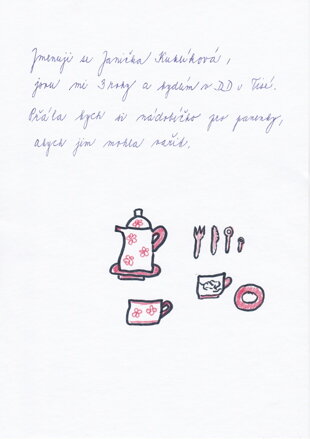 Jmenuji se Janička Kuklíková,
jsou mi 3 roky a bydlím v DD v Tisé.
Přála bych si nádobíčko pro panenky,
abych jim mohla vařit.